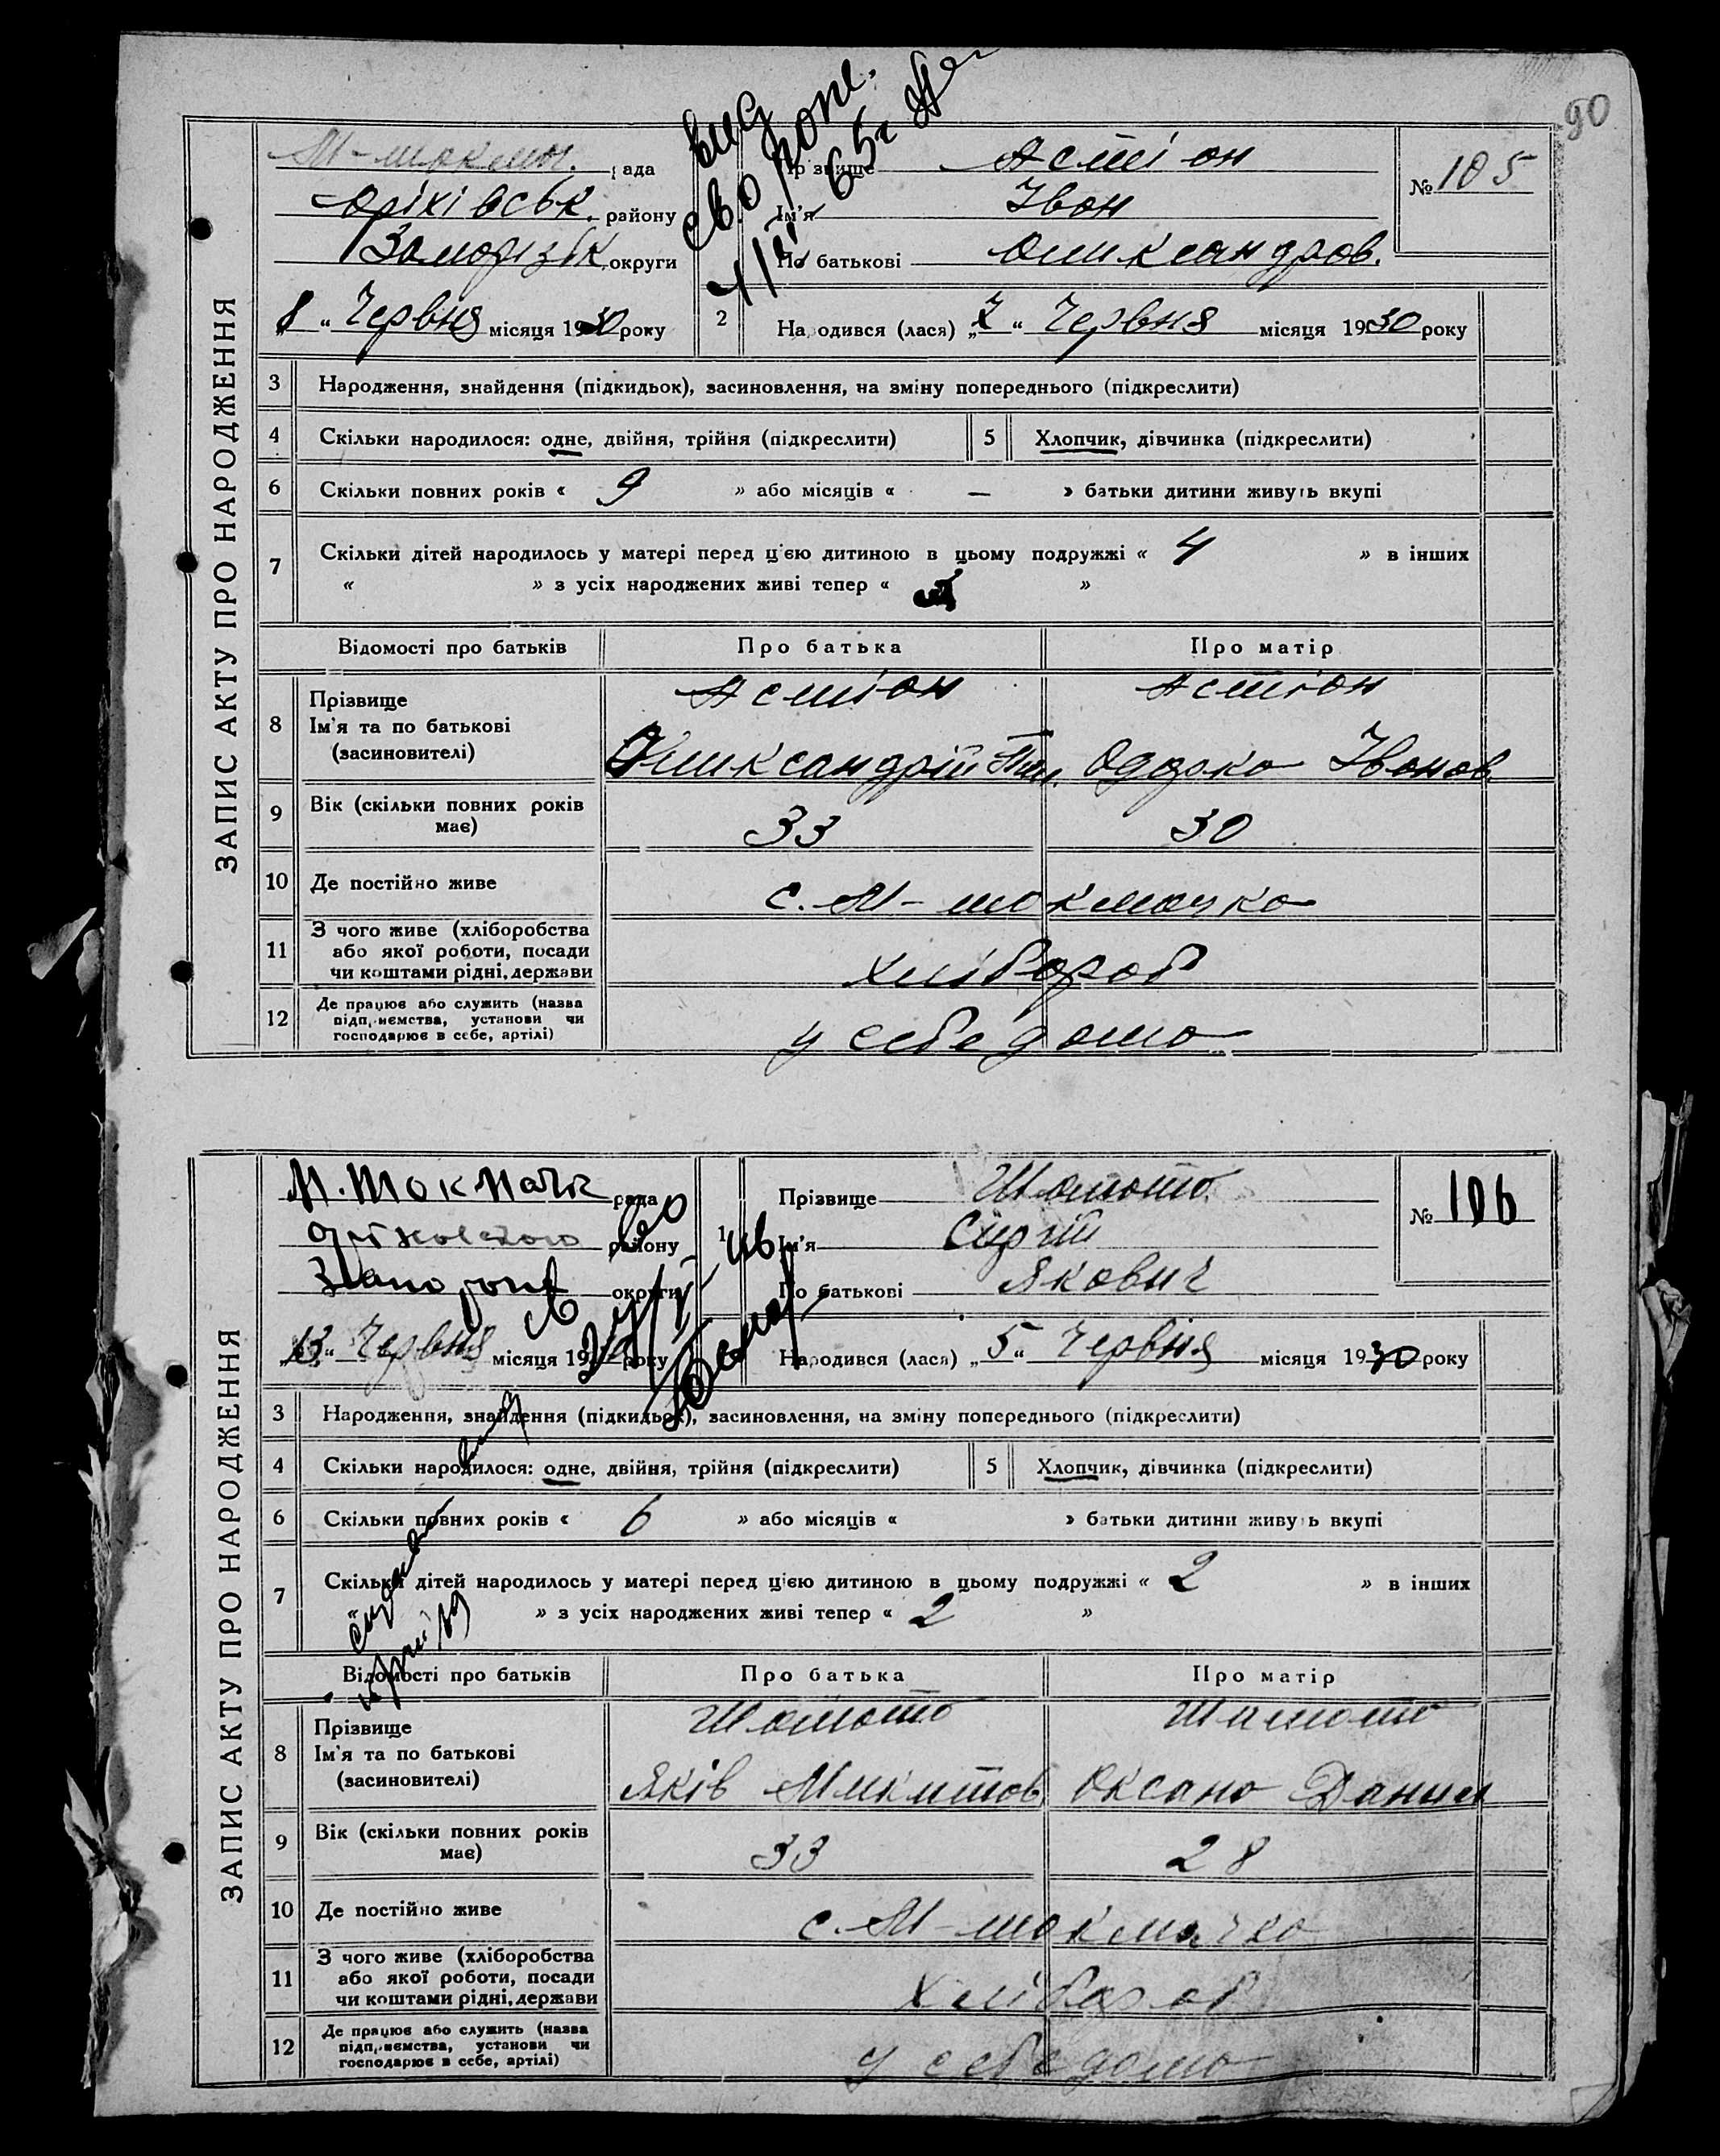 90
ЗАПИС АКТУ ПРО НАРОДЖЕННЯ
М-токмач. рада
Оріхівськ. району
Запорізьк. округи
„8“ Червня місяця 1930 року
вид
1965г
Прізвище Астіон
Ім'я Іван
По батькові Олександров.
№ 105
2 Народився (лася) „7“ Червня місяця 1930 року
3 Народження, знайдення (підкидьок), засиновлення, на зміну попереднього (підкреслити)
4 Скільки народилося: одне, двійня, трійня (підкреслити) 5 Хлопчик, дівчинка (підкреслити)
6 Скільки повних років « 9 » або місяців « — » батьки дитини живуть вкупі
7 Скільки дітей народилось у матері перед цією дитиною в цьому подружжі « 4 » в інших
« » з усіх народжених живі тепер « »
Відомості про батьків Про батька Про матір
8 Прізвище Астіон Астіон
Ім'я та по батькові
(засиновителі) Олександрій Одарка Іванов.
9 Вік (скільки повних років має) 33 30
10 Де постійно живе с. М-токмачка
11 З чого живе (хліборобства
або якої роботи, посади
чи коштами рідні, держави хлібороб
12 Де працює або служить (назва
підприємства, установи чи
господарює в себе, артілі) у себе дома
ЗАПИС АКТУ ПРО НАРОДЖЕННЯ
М. Токмачк рада
Оріховського району
Запоріж округи
„13“ Червня місяця 19 року
1 Прізвище Шамота
Ім'я Сергій
По батькові Якович
№ 106
Народився (лася) „5“ Червня місяця 1930 року
3 Народження, знайдення (підкидьок), засиновлення, на зміну попереднього (підкреслити)
4 Скільки народилося: одне, двійня, трійня (підкреслити) 5 Хлопчик, дівчинка (підкреслити)
6 Скільки повних років « 6 » або місяців « » батьки дитини живуть вкупі
7 Скільки дітей народилось у матері перед цією дитиною в цьому подружжі « 2 » в інших
« » з усіх народжених живі тепер « 2 »
Відомості про батьків Про батька Про матір
8 Прізвище Шамота Шамота
Ім'я та по батькові
(засиновителі) Яків Микитов Оксана Данил
9 Вік (скільки повних років має) 33 28
10 Де постійно живе с. М-токмачка
11 З чого живе (хліборобства
або якої роботи, посади
чи коштами рідні, держави Хлібороб
12 Де працює або служить (назва
підприємства, установи чи
господарює в себе, артілі) у себе дома